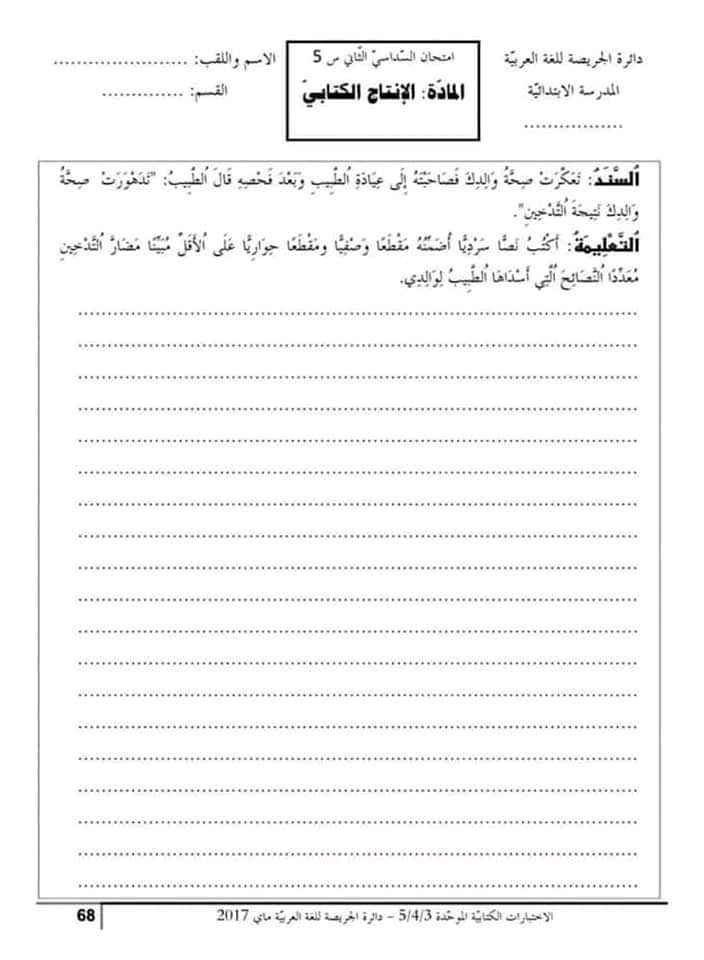 دائرة الجريصة للغة العربيّة
المدرسة الابتدائيّة
................
امتحان السّداسيّ الثّاني س 5
المادّة: الإنتاج الكتابيّ
الاسم واللقب: ......................
القسم: .............
اَلسَّنَدُ: تَعَكَّرَتْ صِحَّةُ وَالِدِكَ فَصَاحَبْتَهُ إِلَى عِيَادَةِ اُلطَّبِيبِ وَبَعْدَ فَحْصِهِ قَالَ اُلطَّبِيبُ: "تَدَهْوَرَتْ صِحَّةُ
وَالِدِكَ نَتِيجَةَ اُلتَّدْخِينِ".
اَلتَّعْلِيمَةُ: أَكْتُبُ نَصًّا سَرْدِيًّا أُضَمِّنُهُ مَقْطَعًا وَصْفِيًّا ومَقْطَعًا حِوَارِيًّا عَلَى اُلأَقَلِّ مُبَيِّنًا مَضَارَّ اُلتَّدْخِينِ
مُعَدِّدًا اُلنَّصَائِحَ اُلَّتِي أَسْدَاهَا اُلطَّبِيبُ لِوَالِدِي.
الاختبارات الكتابيّة الموحّدة 5/4/3 – دائرة الجريصة للغة العربيّة ماي 2017
68